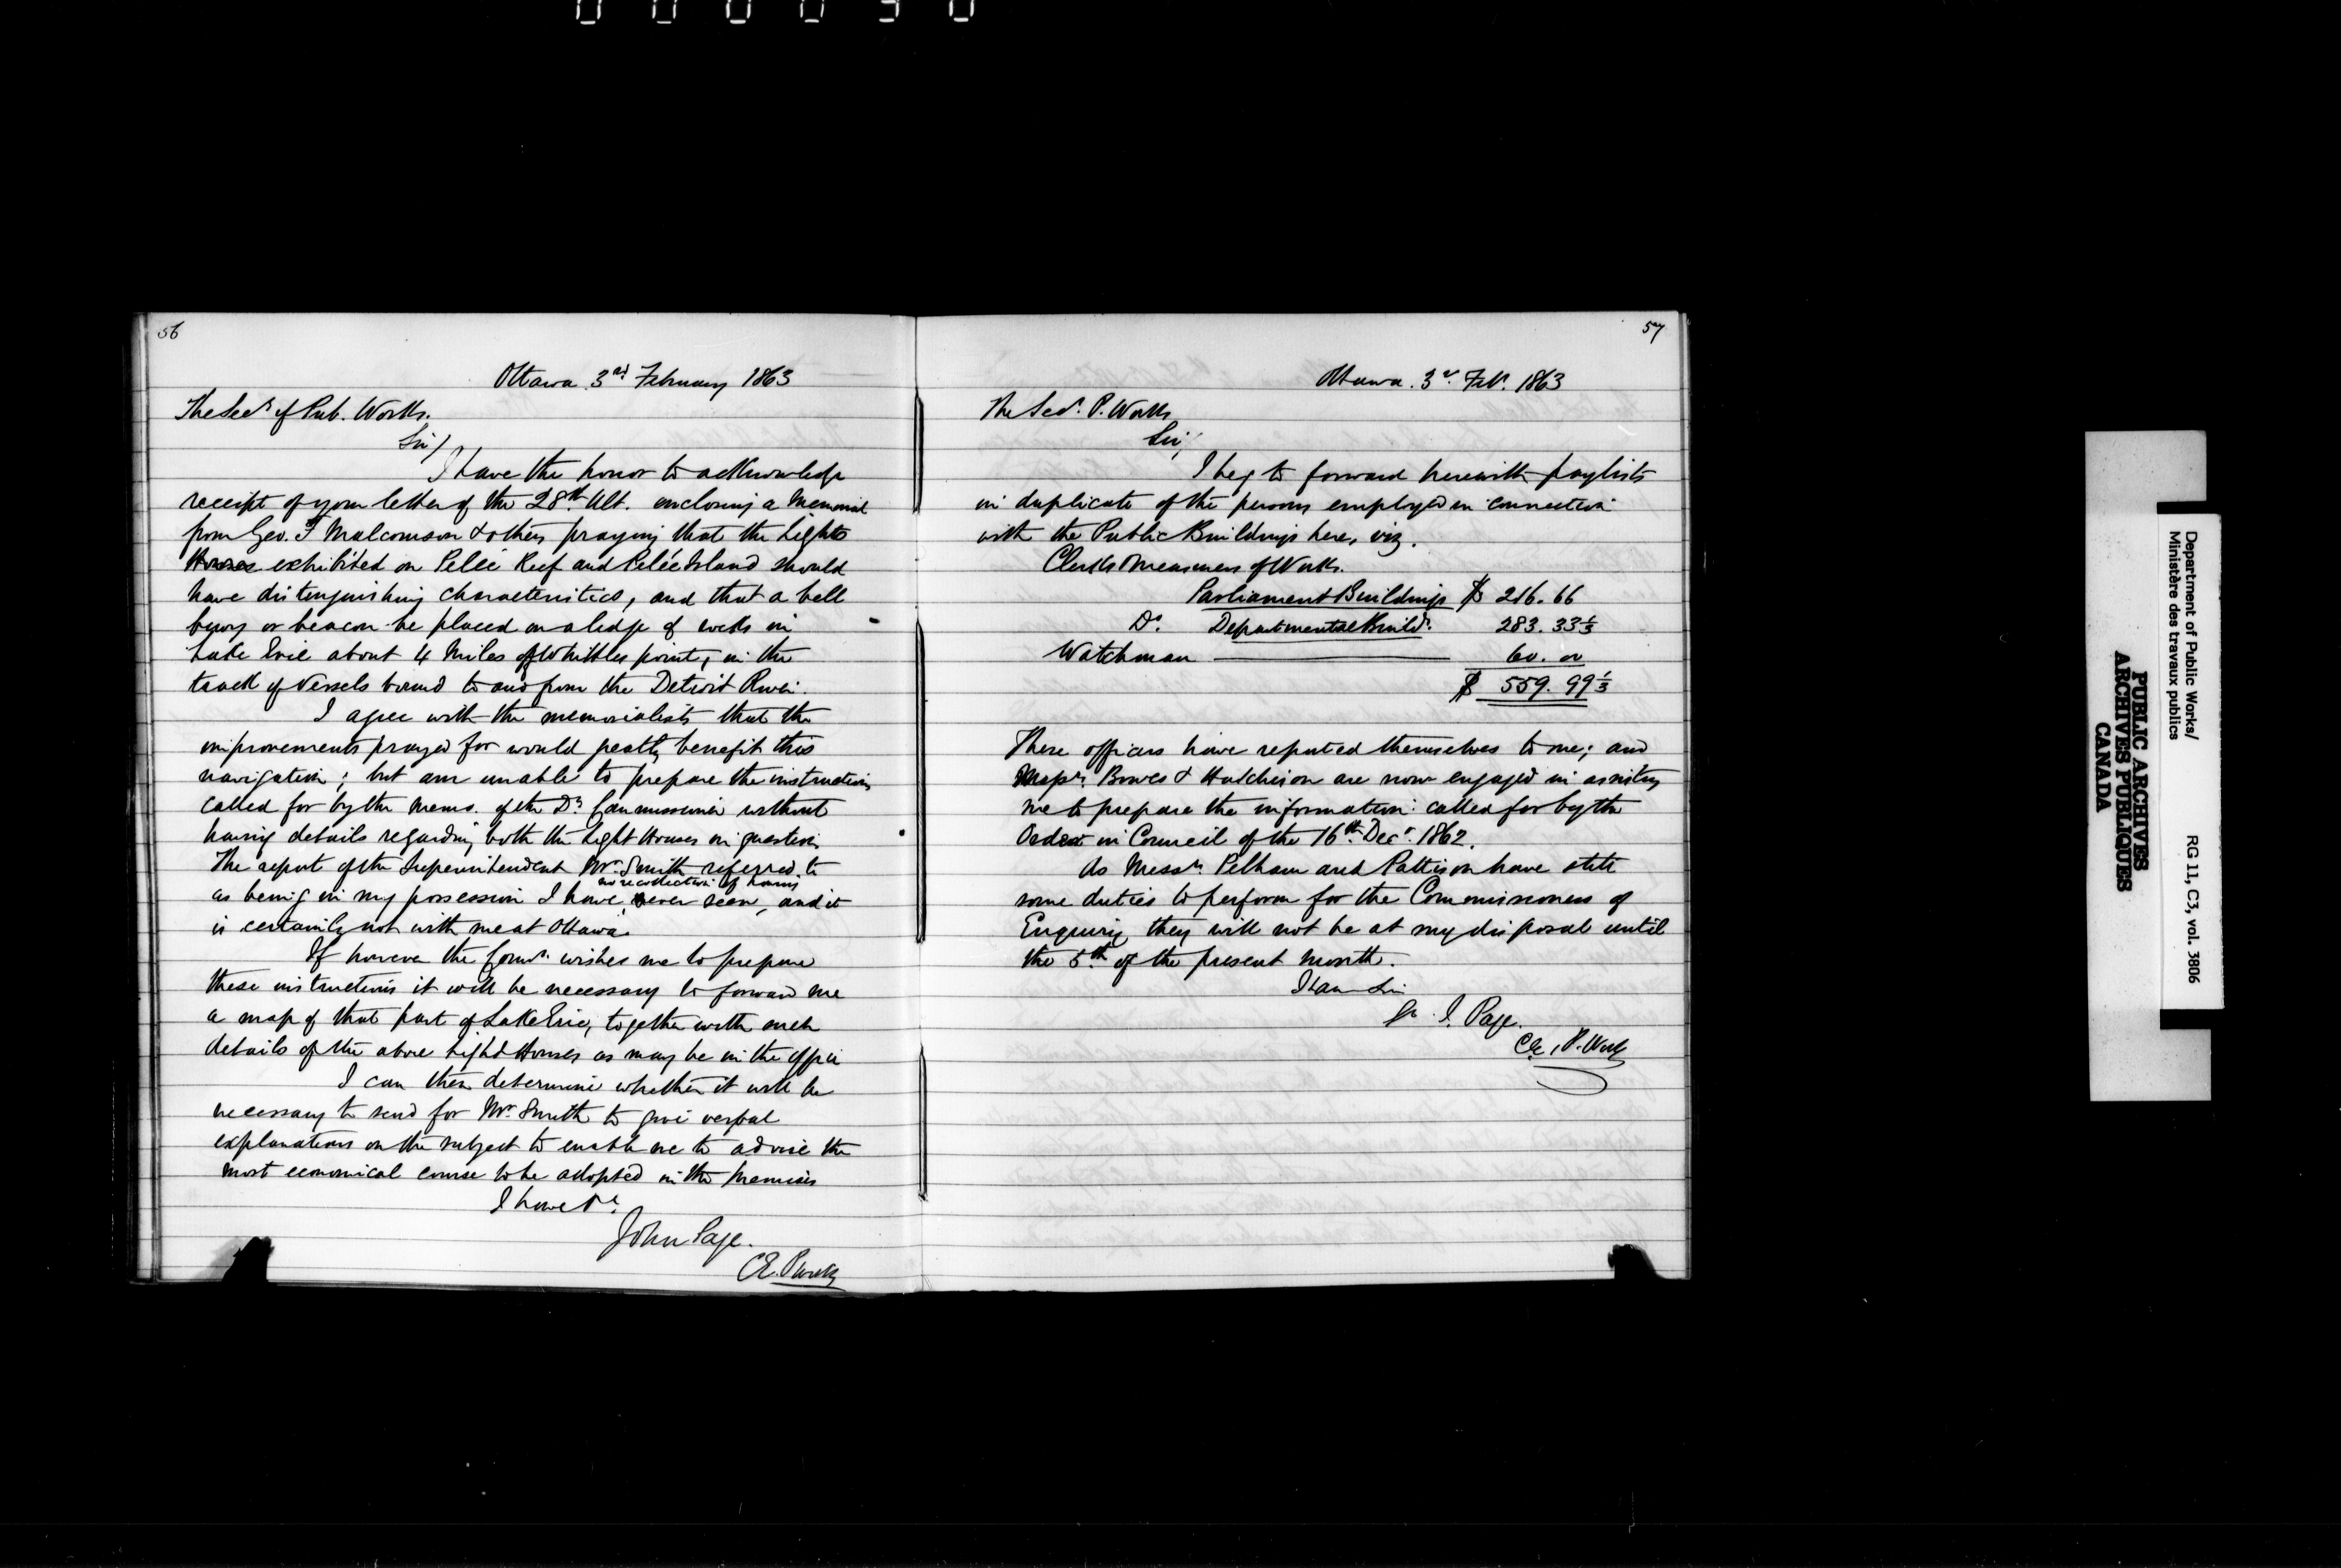 56
Ottawa 3rd February 1863
The Secy of Pub. Works.
Sir/
I have the honor to acknowledge
receipt of your letter of the 28th Ult. enclosing a memorial
from Geo. F Malcomson & others praying that the Lights
Houses exhibited on Pelée Reef and Pelée Island should
have distinguishing characteristics, and that a bell
buoy or beacon be placed on a ledge of rocks in
Lake Erie about 4 Miles off Whittles point, in the
track of Vessels bound to and from the Detroit River.
I agree with the memorialists that the
improvements prayed for would greatly benefit this
navigation; but am unable to prepare the instructions
called for by the memo. of the Dy Commissioner without
having details regarding both the Light Houses in question
The report of the Superintendent Mr. Smith referred to
no recollection of having
as being in my possession I have, never seen, and it
is certainly not with me at Ottawa.
If however the Commr. wishes me to prepare
these instructions it will be necessary to forward me
a map of that part of Lake Erie, together with such
details of the above Light Houses as may be in the office
I can then determine whether it will be
necessary to send for Mr. Smith to give verbal
explanations on the subject to enable me to advise the
most economical course to be adopted in the premises
I have &c.
John Page.
CE. P Works
57
Ottawa. 3rd. Feby. 1863
The Secy. P. Works
Sir,
I beg to forward herewith paylists
in duplicate of the persons employed in connection
with the Public Buildings here, viz.
Clerks Measurers of Works.
Parliament Buildings $ 216.66
Do. Departmental Build. 283.33 1/3
Watchman 60.00
$ 559.99 1/3
These officers have reported themselves to me; and
Messrs. Bowes & Hutchison are now engaged in assisting
me to prepare the information called for by the
Order in Council of the 16th. Decr. 1862.
As Messrs. Pelham and Pattison have still
some duties to perform for the Commissioners of
Enquiry they will not be at my disposal until
the 5th. of the present month.
I am Sir
J. Page.
CE, P. Works
Department of Public Works/
Ministère des travaux publics
RG 11, C3, vol. 3806
PUBLIC ARCHIVES
ARCHIVES PUBLIQUES
CANADA